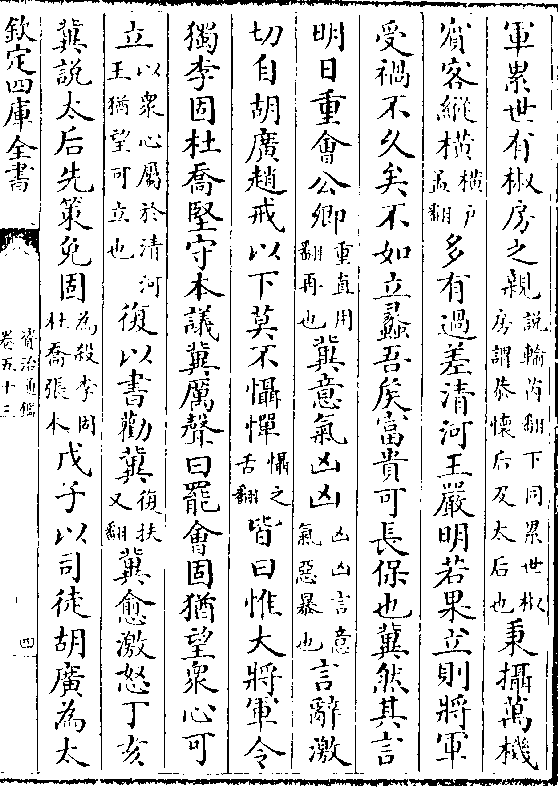 軍累世有椒房之親說輸芮翻下同累世椒房謂恭懷后及太后也秉攝萬機
賓客縱横横戸孟翻多有過差清河王嚴明若果立則將軍
受禍不久矣不如立蠡吾矦富貴可長保也冀然其言
明日重會公卿重直用翻再也冀意氣凶凶凶凶言意氣惡暴也言辭激
切自胡廣趙戒以下莫不懾憚懾之舌翻皆曰惟大將軍令
獨李固杜喬堅守本議冀厲聲曰罷會固猶望衆心可
立以衆心屬於清河王猶望可立也復以書勸冀復扶又翻冀愈激怒丁亥
冀説太后先策免固為殺李固杜喬張本戊子以司徒胡廣為太
欽定四庫全書
資治通鑑
卷五十三
四